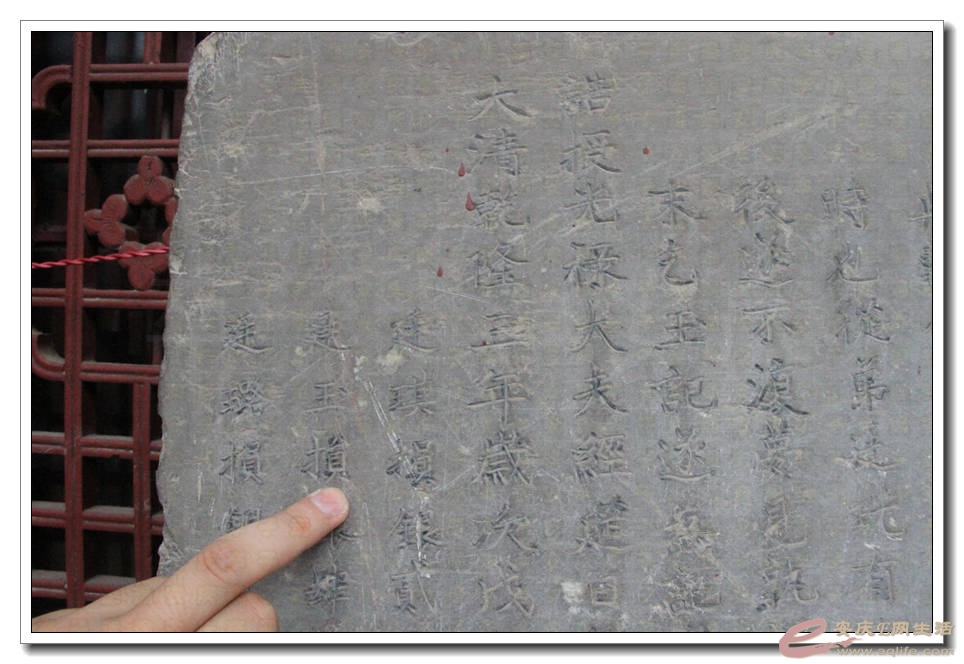 時從弟有
後不復夢見
末乞玉記遂為記
誥授光祿大夫經筵日
大清乾隆三年歲次戊
廷琪損銀貳
廷玉損肆
廷璐損銀
安庆E网生活
www.aqlife.com